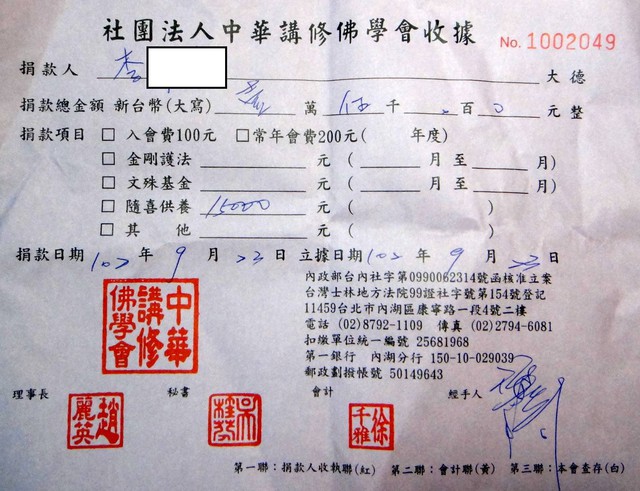 社團法人中華講修佛學會收據
No. 1002049
捐款人 李 大德
捐款總金額 新台幣(大寫) 壹 萬 伍 千 0 百 0 元整
捐款項目 □ 入會費100元 □常年會費200元( 年度)
□ 金剛護法 元 ( 月 至 月)
□ 文殊基金 元 ( 月 至 月)
□ 隨喜供養 15000 元 ( )
□ 其 他 元 ( )
捐款日期 102 年 9 月 23 日 立據日期 102 年 9 月 23 日
內政部台內社字第0990062314號函核准立案
台灣士林地方法院99證社字號第154號登記
11459台北市內湖區康寧路一段4號二樓
電話 (02)8792-1109 傳真 (02)2794-6081
扣繳單位統一編號 25681968
第一銀行 內湖分行 150-10-029039
郵政劃撥帳號 50149643
中華講修佛學會
理事長 秘書 會計 經手人
趙麗英 吳桂芬 徐千雅
第一聯：捐款人收執聯(紅) 第二聯：會計聯(黃) 第三聯：本會查存(白)